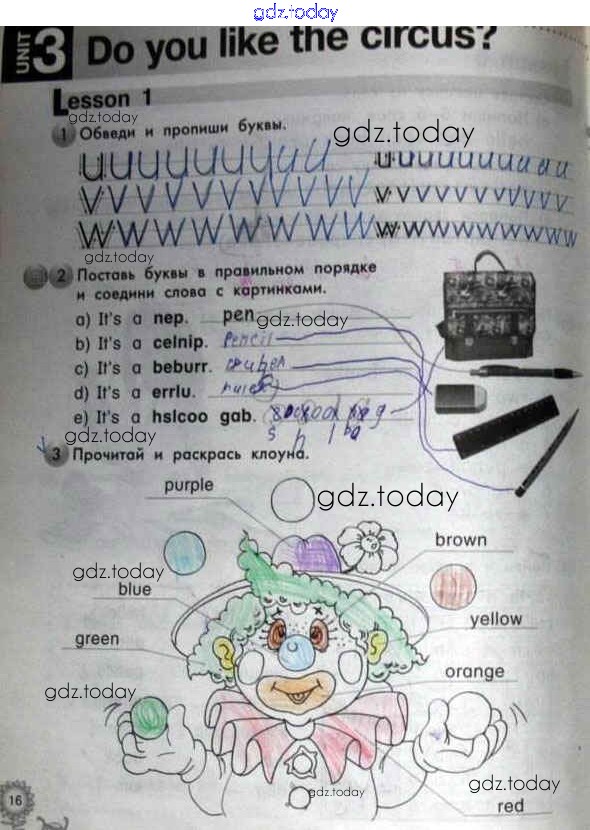 gdz.today
UNIT 3 Do you like the circus?
Lesson 1
gdz.today
1 Обведи и пропиши буквы.
gdz.today
U U U U U U U U U U u u u u u u u u u u
V V V V V V V V V V v v v v v v v v v v
W W W W W W W W W w w w w w w w w w
gdz.today
2 Поставь буквы в правильном порядке
и соедини слова с картинками.
a) It's a nep. pen
gdz.today
b) It's a celnip. Pencil
c) It's a beburr.
d) It's a errlu.
e) It's a hslcoo gab.
gdz.today
3 Прочитай и раскрась клоуна.
purple
gdz.today
brown
gdz.today
blue
yellow
green
orange
gdz.today
gdz.today
gdz.today
red
16